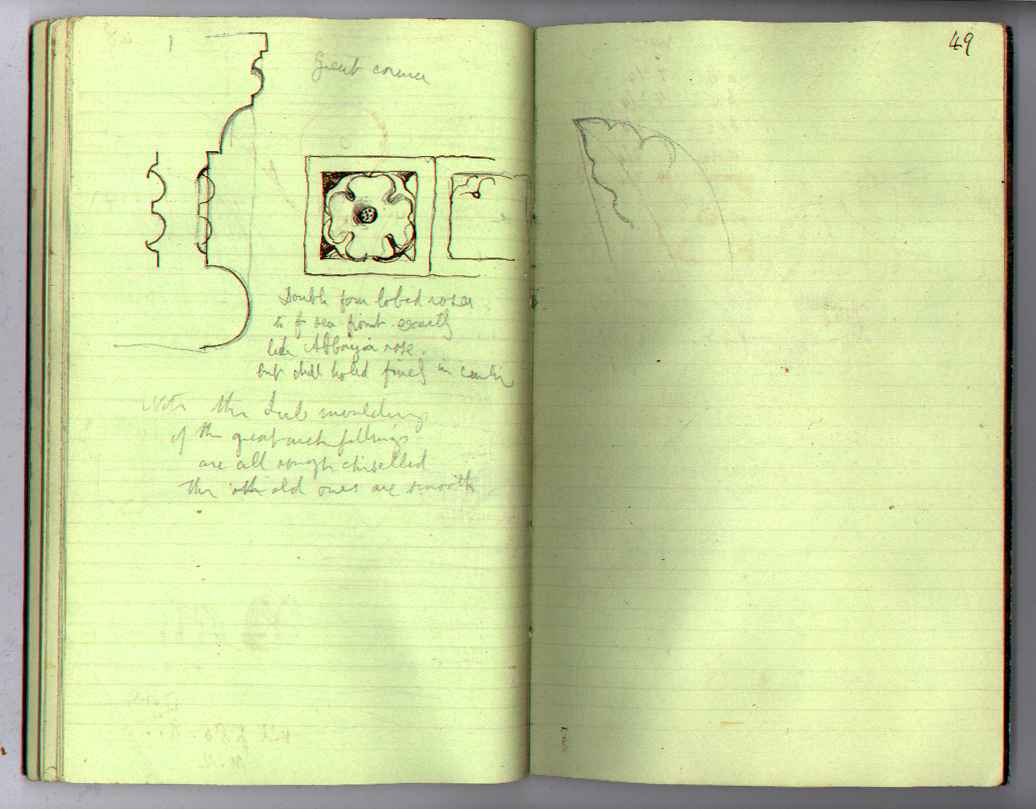 Great cornice
Double four lobed roses
exactly
like Abbazia rose.
but drill holed finely in center
Note the
of the great arch fillings
are all rough chiselled
The other old ones are smooth
49